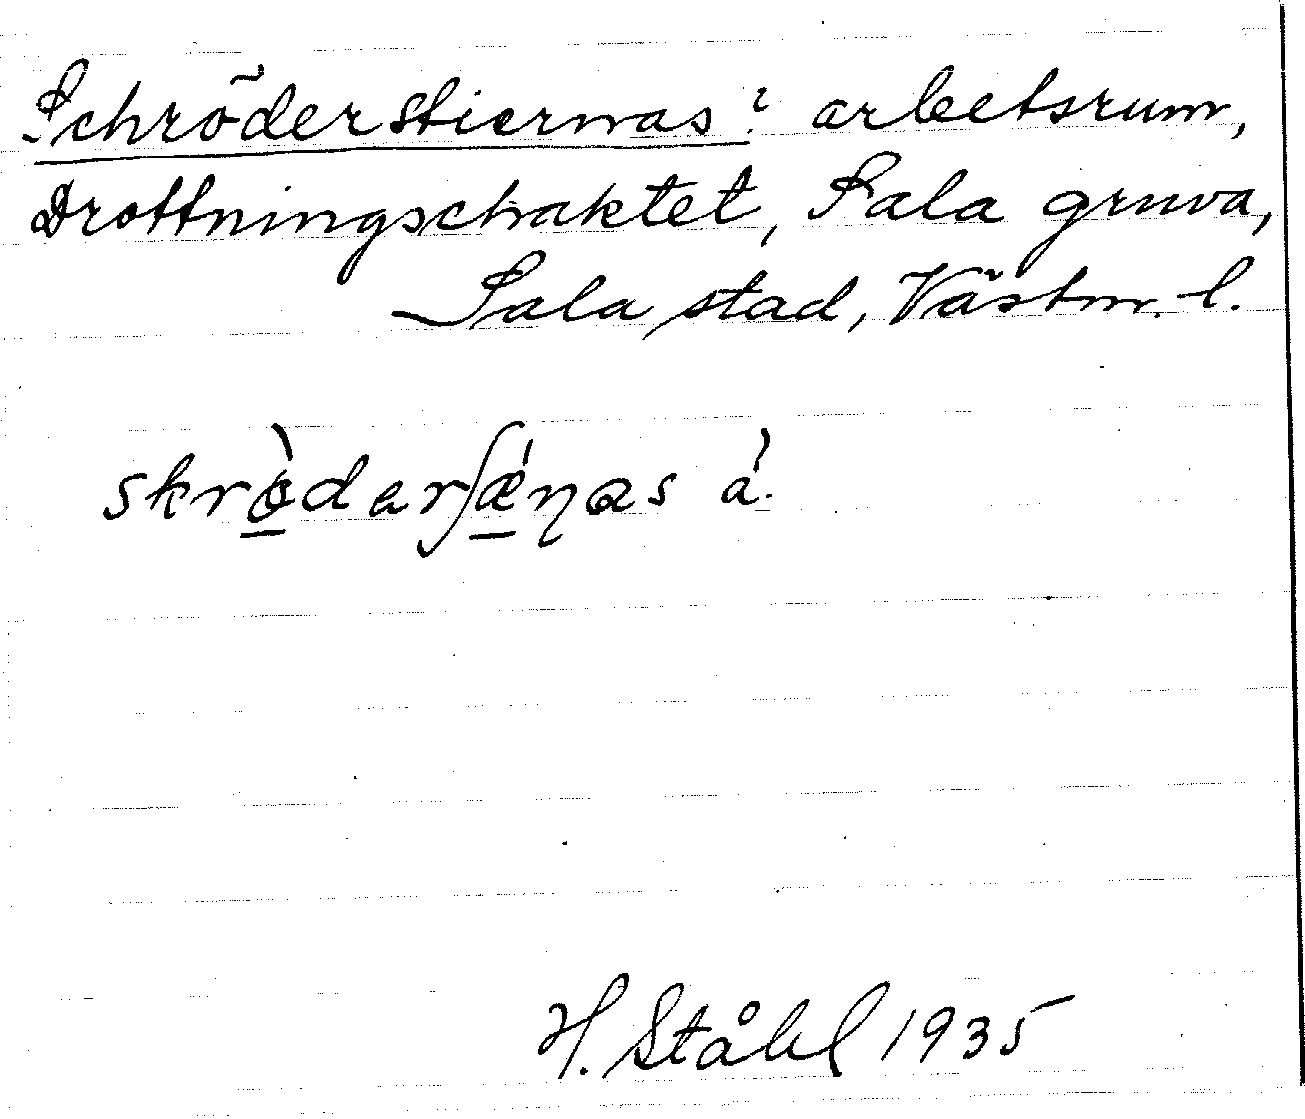 Schröderstiernas? arbetsrum,
Drottningschaktet, Sala gruva,
Sala stad, Västm. l.
skrø̀darʃǽɳas á.
H. Ståhl 1935